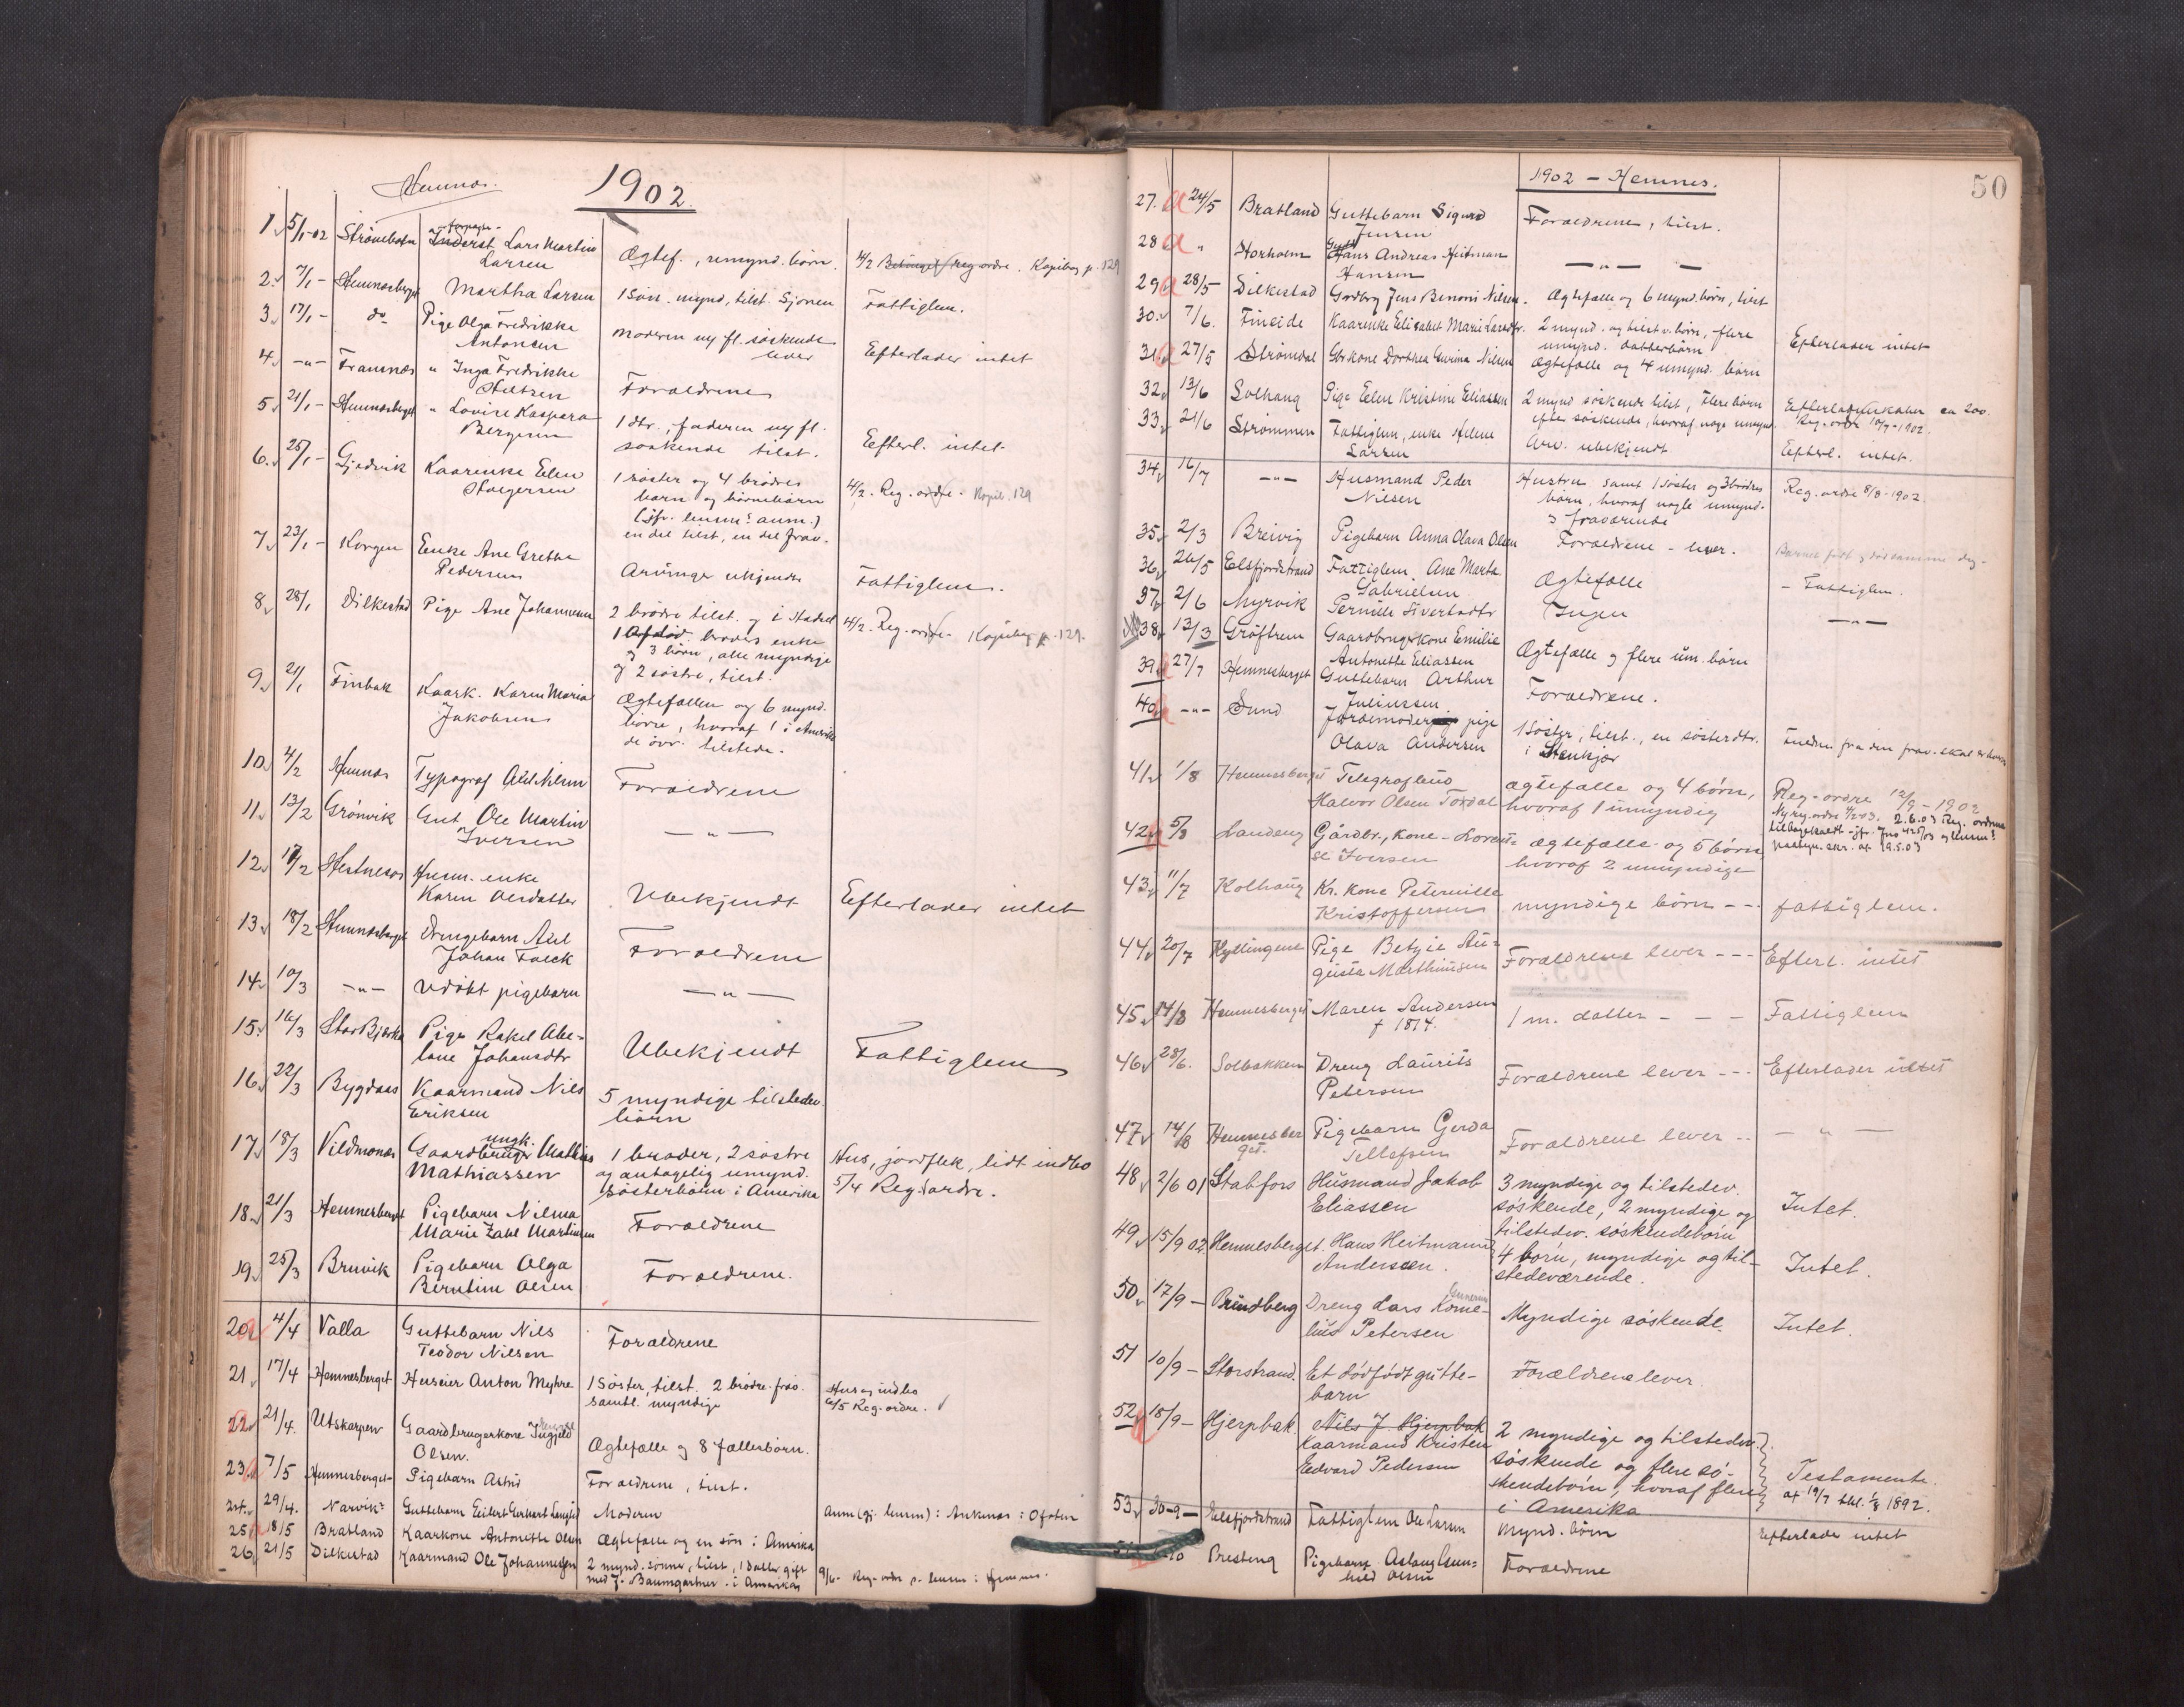 Hemnæs.
1902.
1 5/1-02 Strömebotn Inderst Lars Martin Ægtef., umynd. börn. 4/2 Reg. ordre. Kopibog p. 129
Larsen
2. 7/1- Hemnæsberget Martha Larsen 1 sön. mynd, tilst. Sjonen Fattiglem.
3. 17/1- do Pige Olga Fredrikke Moderen og fl. söskende Efterlader intet
Antonsen lever
4. -"- Framnæs " Inga Fredrikke Forældrene
5. 21/1- Hemnæsberget " Lovise Kaspara 1 dtr., faderen og fl. Efterl. intet
Bergersen söskende tilst.
6. 25/1- Gjedvik Kaarenke Elen 1 söster og 4 brödres 4/2. Reg. ordre. Kopib. 129
Holgersen barn og börnebarn
en del tilst, en del frav.
7. 23/1- Korgen Enke Ane Grethe Arvinge ukjendt Fattiglem.
Pedersen
8. 28/1 Dilkestad Pige Ane Johannesen 2 brödre tilst. og i Hadsel 4/2. Reg. ordre. Kopibog p. 129.
1 Afdöd broders enke
og 3 börn, alle myndige
og 2 söstre, tilst.
9. 21/1 Finbak Kaark. Karen Maria Ægtefællen og 6 mynd.
Jakobsen börn, hvoraf 1 i Amerika
de övr. tilstede.
10. 4/2 Hemnæs Typograf Forældrene
11. 13/2 Grönvik Gut Ole Martin -"-
Iversen
12. 17/2 Hestnesös Husm. enke Ubekjendt Efterlader intet
Karen Olesdatter
13. 18/2 Hemnæsberget Drengebarn Axel Forældrene
Johan Falck
14. 10/3 -"- Udöbt pigebarn -"-
15. 16/3 StorBjerka Pige Rakel Abe- Ubekjendt Fattiglem
lone Johansdtr
16. 22/3 Bygdaas Kaarmand Nils 5 myndige tilstedev.
Eriksen börn
17. 18/3 Vildmonæs ungk. Gaardbruger Mathias 1 broder, 2 söstre Hus, jordflek, lidt indbo
Mathiassen og antagelig umynd. 5/4 Reg. ordre.
sösterbörn i Amerika
18. 21/3 Hemnesberget Pigebarn Nilma Forældrene
Marie Zahl Martinsen
19. 25/3 Bruvik Pigebarn Olga Forældrene.
Berntine Olsen
20 4/4 Valla Guttebarn Nils Forældrene
Teodor Nilsen
21 17/4 Hemnesberget Huseier Anton Myhre 1 Söster, tilst. 2 brödre frav. Hus og indbo
samtl. myndige 6/5 Reg. ordre.
22 21/4. Utskarpen Gaardbrugerkone Ingjeld Ægtefælle og 8 fællesbörn.
Olsen.
23 7/5 Hemnesberget- Pigebarn Astrid Forældrene, tilst.
24. 29/4. Narvik- Guttebarn Eilert Gerhart Moderen Anm (gj. lensm): Ankenæs: Ofoten
25 18/5 Bratland Kaarkone Antonette Olsen Ægtefælle og en sön i Amerika
26 21/5 Dilkestad Kaarmand Ole Johannesen 2 mynd. sönner, tilst, 1 datter gift 9/6- Reg. ordre
med J. Baumgartner i Amerika
1902 – Hemnes.
50
27. 24/5 Bratland Guttebarn Sigurd Forældrene, tilst.
Jensen
28 " Storholm Hans Andreas Heitman -"-
Hansen
29 28/5 Dilkestad Grdbrg Jens Benoni Nilsen. Ægtefælle og 6 mynd. börn, tilst
30. 7/6. Fineide Kaarenke Elisabet Marie Larsdtr. 2 mynd. og tilst.v. börn, flere Efterlader intet
umynd. datterbörn
31 27/5 Strömdal Gbrkone Dorthea Nilsen Ægtefælle og 4 umynd. börn
32. 13/6 Solhaug Pige Elen Kristine Eliassen 2 mynd söskende tilst, flere börn
efter söskende, hvoraf nogle umynd. Reg. ordre 10/7-1902.
33. 21/6 Strömmen Fattiglem, enke Helene Arv. ubekjendt Efterl. intet.
Larsen
34. 16/7 -"- Husmand Peder Hustru samt 1 söster og 3 brödres Reg. ordre 8/8-1902.
Nilsen börn, hvoraf nogle umynd.
og fraværende
35. 2/3 Breivig Pigebarn Anna Olava Olsen Forældrene - lever. Barnet födt og död samme dag.
36. 26/5 Elsfjordstrand Fattiglem Ane Marta Ægtefælle - Fattiglem.
Gabrielsen
37. 2/6 Myrvik Pernille Sivertsdtr Ingen -"-
38. 13/3 Gröftrem Gaardbrugerkone Emilie Ægtefælle og flere um. börn
Antonette Eliassen
39. 27/7 Hemnesberget Guttebarn Arthur Forældrene.
Juliussen
40 -"- Sund Jordemoder pige 1 Söster, tilst., en sösterdtr.
Olava Andersen i Stenkjær
41. 1/8 Hemnesberget Telegrafbud Ægtefælle og 4 börn, Reg-ordre 12/9-1902
Halvor Olsen Tordal hvoraf 1 umyndig 2.6.03 Reg. ordren
42 5/8 Landeng Gårdbr., kone - Loren- Ægtefælle og 5 börn
se Iversen hvoraf 2 umyndige
43. 11/7 Kolhaug Kr. kone Peternille myndige börn -- fattiglem.
Kristoffersen
44. 20/7 Hyllingene Pige Betzie Au- Forældrene lever --- Efterl. intet
gusta Marthinsen
45. 14/8 Hemnesberget Maren Andersen 1 m. datter - - - Fattiglem
f 1814.
46. 28/6. Solbakken Dreng Laurits Forældrene lever --- Efterlader intet
Petersen
47. 14/8 Hemnesber Pigebarn Gerda Forældrene lever -- -"-
get. Tellefsen
48 2/6 01 Stabfors Husmand Jakob 3 myndige og tilstedev. Intet.
Eliassen söskende, 2 myndige og
tilstedev. söskendebörn
49 15/9 02 Hemnesberget. Hans Heitmann 4 börn, myndige og til- Intet.
Andersen. stedeværende.
50 17/9 – Brendberg Dreng Lars Korne- Myndige söskende Intet.
lius Petersen
51 10/9 – Storstrand. Et dödfödt gutte- Forældrene lever.
barn
52 18/9 – Hjerpbak Nils J Hjerpbak 2 myndige og tilstedev.
Kaarmand Kristen söskende og flere sö- Testamente
Edvard Pedersen skendebörn, hvoraf flere af 19/7 1892.
i Amerika
53. 30-9 – Elsfjordstrand Fattiglem Ole Larsen Mynd. börn Efterlade intet
Presteng Pigebarn Aslaug Gun- Forældrene
hild Olsen